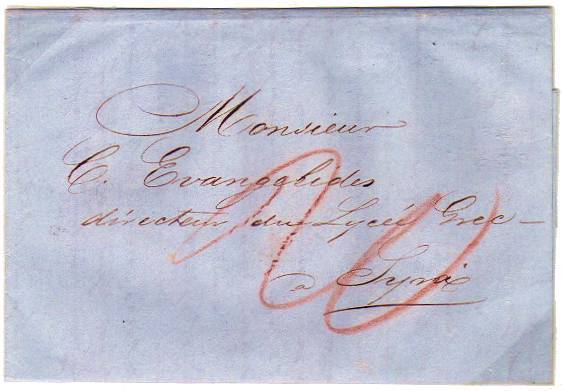 Monsieur
C. Evangelides
directeur du Lycée Grec –
a Syra